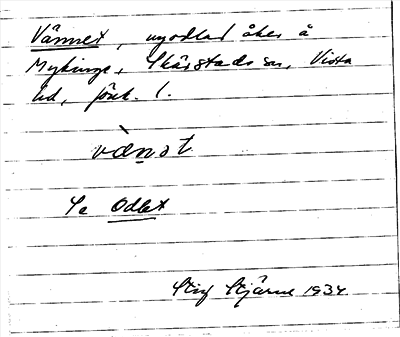 Vännet, uppodlad åker å
Myckinge, Skärstads sn, Vista
hd, Jönk. l.
vànət
Se Odlet
Stig Stjärne 1934.